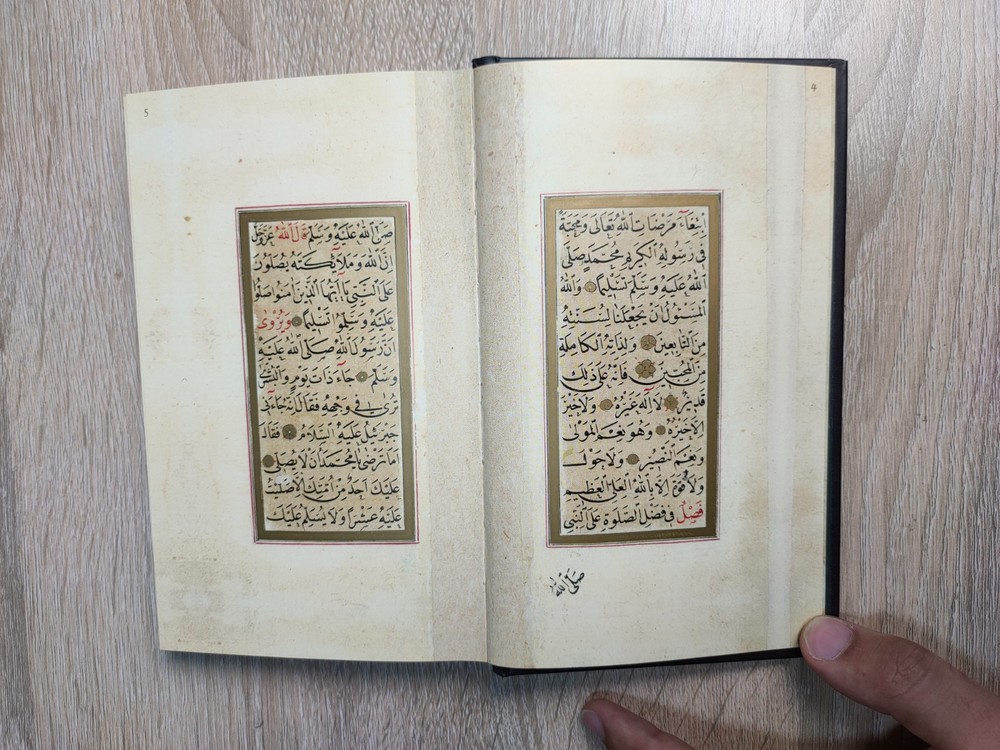 4
ابْتِغَآءَ مَرْضَاتِ اللهِ تَعَالَى وَمَحَبَّةً
فِى رَسُولِهِ الْكَرِيمِ مُحَمَّدٍ صَلَّى
اللهُ عَلَيْهِ وَسَلَّمَ تَسْلِيمًا وَاللهُ
الْمَسْئُولُ اَنْ يَجْعَلَنَا لِسُنَّتِهِ
مِنَ التَّابِعِينَ وَلِذَاتِهِ الْكَامِلَةِ
مِنَ الْمُحِبِّينَ فَاِنَّهُ عَلَى ذَلِكَ
قَدِيرٌ لَا اِلَهَ غَيْرُهُ وَلَا خَيْرَ
اِلَّا خَيْرُهُ وَهُوَ نِعْمَ الْمَوْلَى
وَنِعْمَ النَّصِيرُ وَلَا حَوْلَ
وَلَا قُوَّةَ اِلَّا بِاللهِ الْعَلِىِّ الْعَظِيمِ
فَصْلٌ فِى فَضْلِ الصَّلَوةِ عَلَى النَّبِىِّ
صَلَّى اللهُ
5
صَلَّى اللهُ عَلَيْهِ وَسَلَّمَ قَالَ اللهُ عَزَّ وَجَلَّ
اِنَّ اللهَ وَمَلَآئِكَتَهُ يُصَلُّونَ
عَلَى النَّبِىِّ يَآ اَيُّهَا الَّذِينَ اٰمَنُوا صَلُّوا
عَلَيْهِ وَسَلِّمُوا تَسْلِيمًا وَيُرْوَى
اَنَّ رَسُولَ اللهِ صَلَّى اللهُ عَلَيْهِ
وَسَلَّمَ جَآءَ ذَاتَ يَوْمٍ وَالْبُشْرَى
تُرَى فِى وَجْهِهِ فَقَالَ اِنَّهُ جَآءَنِى
جِبْرِيلُ عَلَيْهِ السَّلَامُ فَقَالَ
اَمَا تَرْضَى يَا مُحَمَّدُ اَنْ لَا يُصَلِّىَ
عَلَيْكَ اَحَدٌ مِنْ اُمَّتِكَ اِلَّا صَلَّيْتُ
عَلَيْهِ عَشْرًا وَلَا يُسَلِّمُ عَلَيْكَ